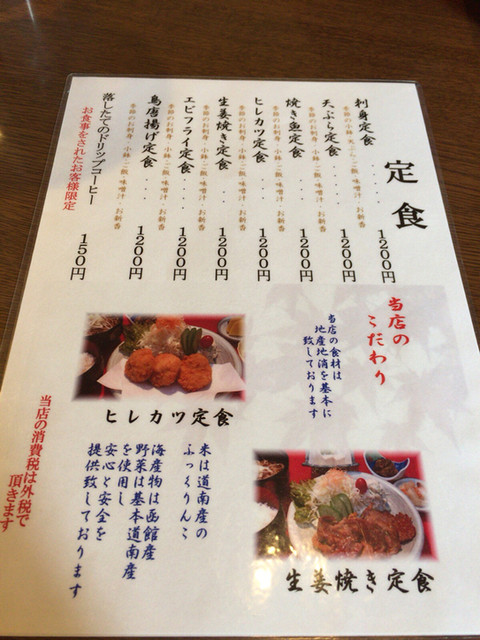 定食
刺身定食・・・・・1200円
季節の小鉢 天ぷら ご飯 味噌汁 お新香
天ぷら定食・・・・1200円
季節のお刺身 小鉢 ご飯 味噌汁 お新香
焼き魚定食・・・・1200円
季節のお刺身 小鉢 ご飯 味噌汁 お新香
ヒレカツ定食・・・1200円
季節のお刺身 小鉢 ご飯 味噌汁 お新香
生姜焼き定食・・・1200円
季節のお刺身 小鉢 ご飯 味噌汁 お新香
エビフライ定食・・1200円
季節のお刺身 小鉢 ご飯 味噌汁 お新香
鳥唐揚げ定食・・・1200円
季節のお刺身 小鉢 ご飯 味噌汁 お新香
落したてのドリップコーヒー 150円
お食事をされたお客様限定
当店の
こだわり
当店の食材は
地産地消を基本に
致しております
ヒレカツ定食
米は道南産の
ふっくりんこ
海産物は函館産
野菜は基本道南産
を使用し
安心と安全を
提供致しております
生姜焼き定食
当店の消費税は外税で
頂きます